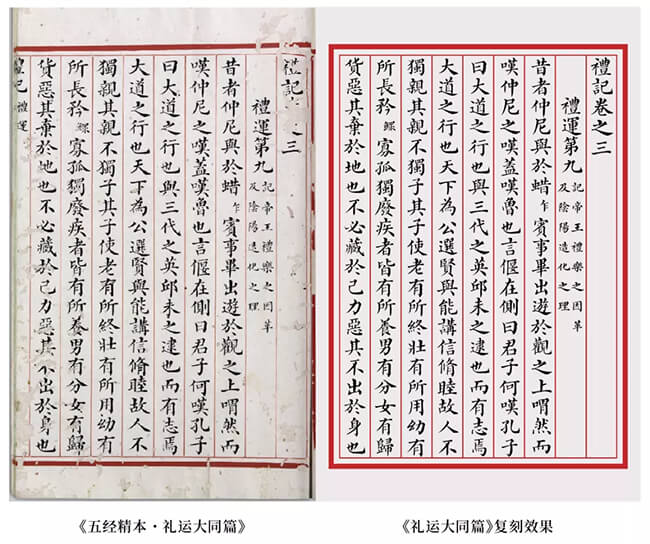 禮 之三
禮運第九 記帝王禮樂之因革
及陰陽造化之理
昔者仲尼與於蜡乍賓事畢出遊於觀之上喟然而
嘆仲尼之嘆蓋嘆魯也言偃在側曰君子何嘆孔子
曰大道之行也與三代之英邱未之逮也而有志焉
大道之行也天下為公選賢與能講信脩睦故人不
獨親其親不獨子其子使老有所終壯有所用幼有
所長矜鰥寡孤獨廢疾者皆有所養男有分女有歸
貨惡其棄於地也不必藏於己力惡其不出於身也
禮記 禮運
《五经精本·礼运大同篇》
禮記卷之三
禮運第九 記帝王禮樂之因革
及陰陽造化之理
昔者仲尼與於蜡乍賓事畢出遊於觀之上喟然而
嘆仲尼之嘆蓋嘆魯也言偃在側曰君子何嘆孔子
曰大道之行也與三代之英邱未之逮也而有志焉
大道之行也天下為公選賢與能講信脩睦故人不
獨親其親不獨子其子使老有所終壯有所用幼有
所長矜鰥寡孤獨廢疾者皆有所養男有分女有歸
貨惡其棄於地也不必藏於己力惡其不出於身也
《礼运大同篇》复刻效果